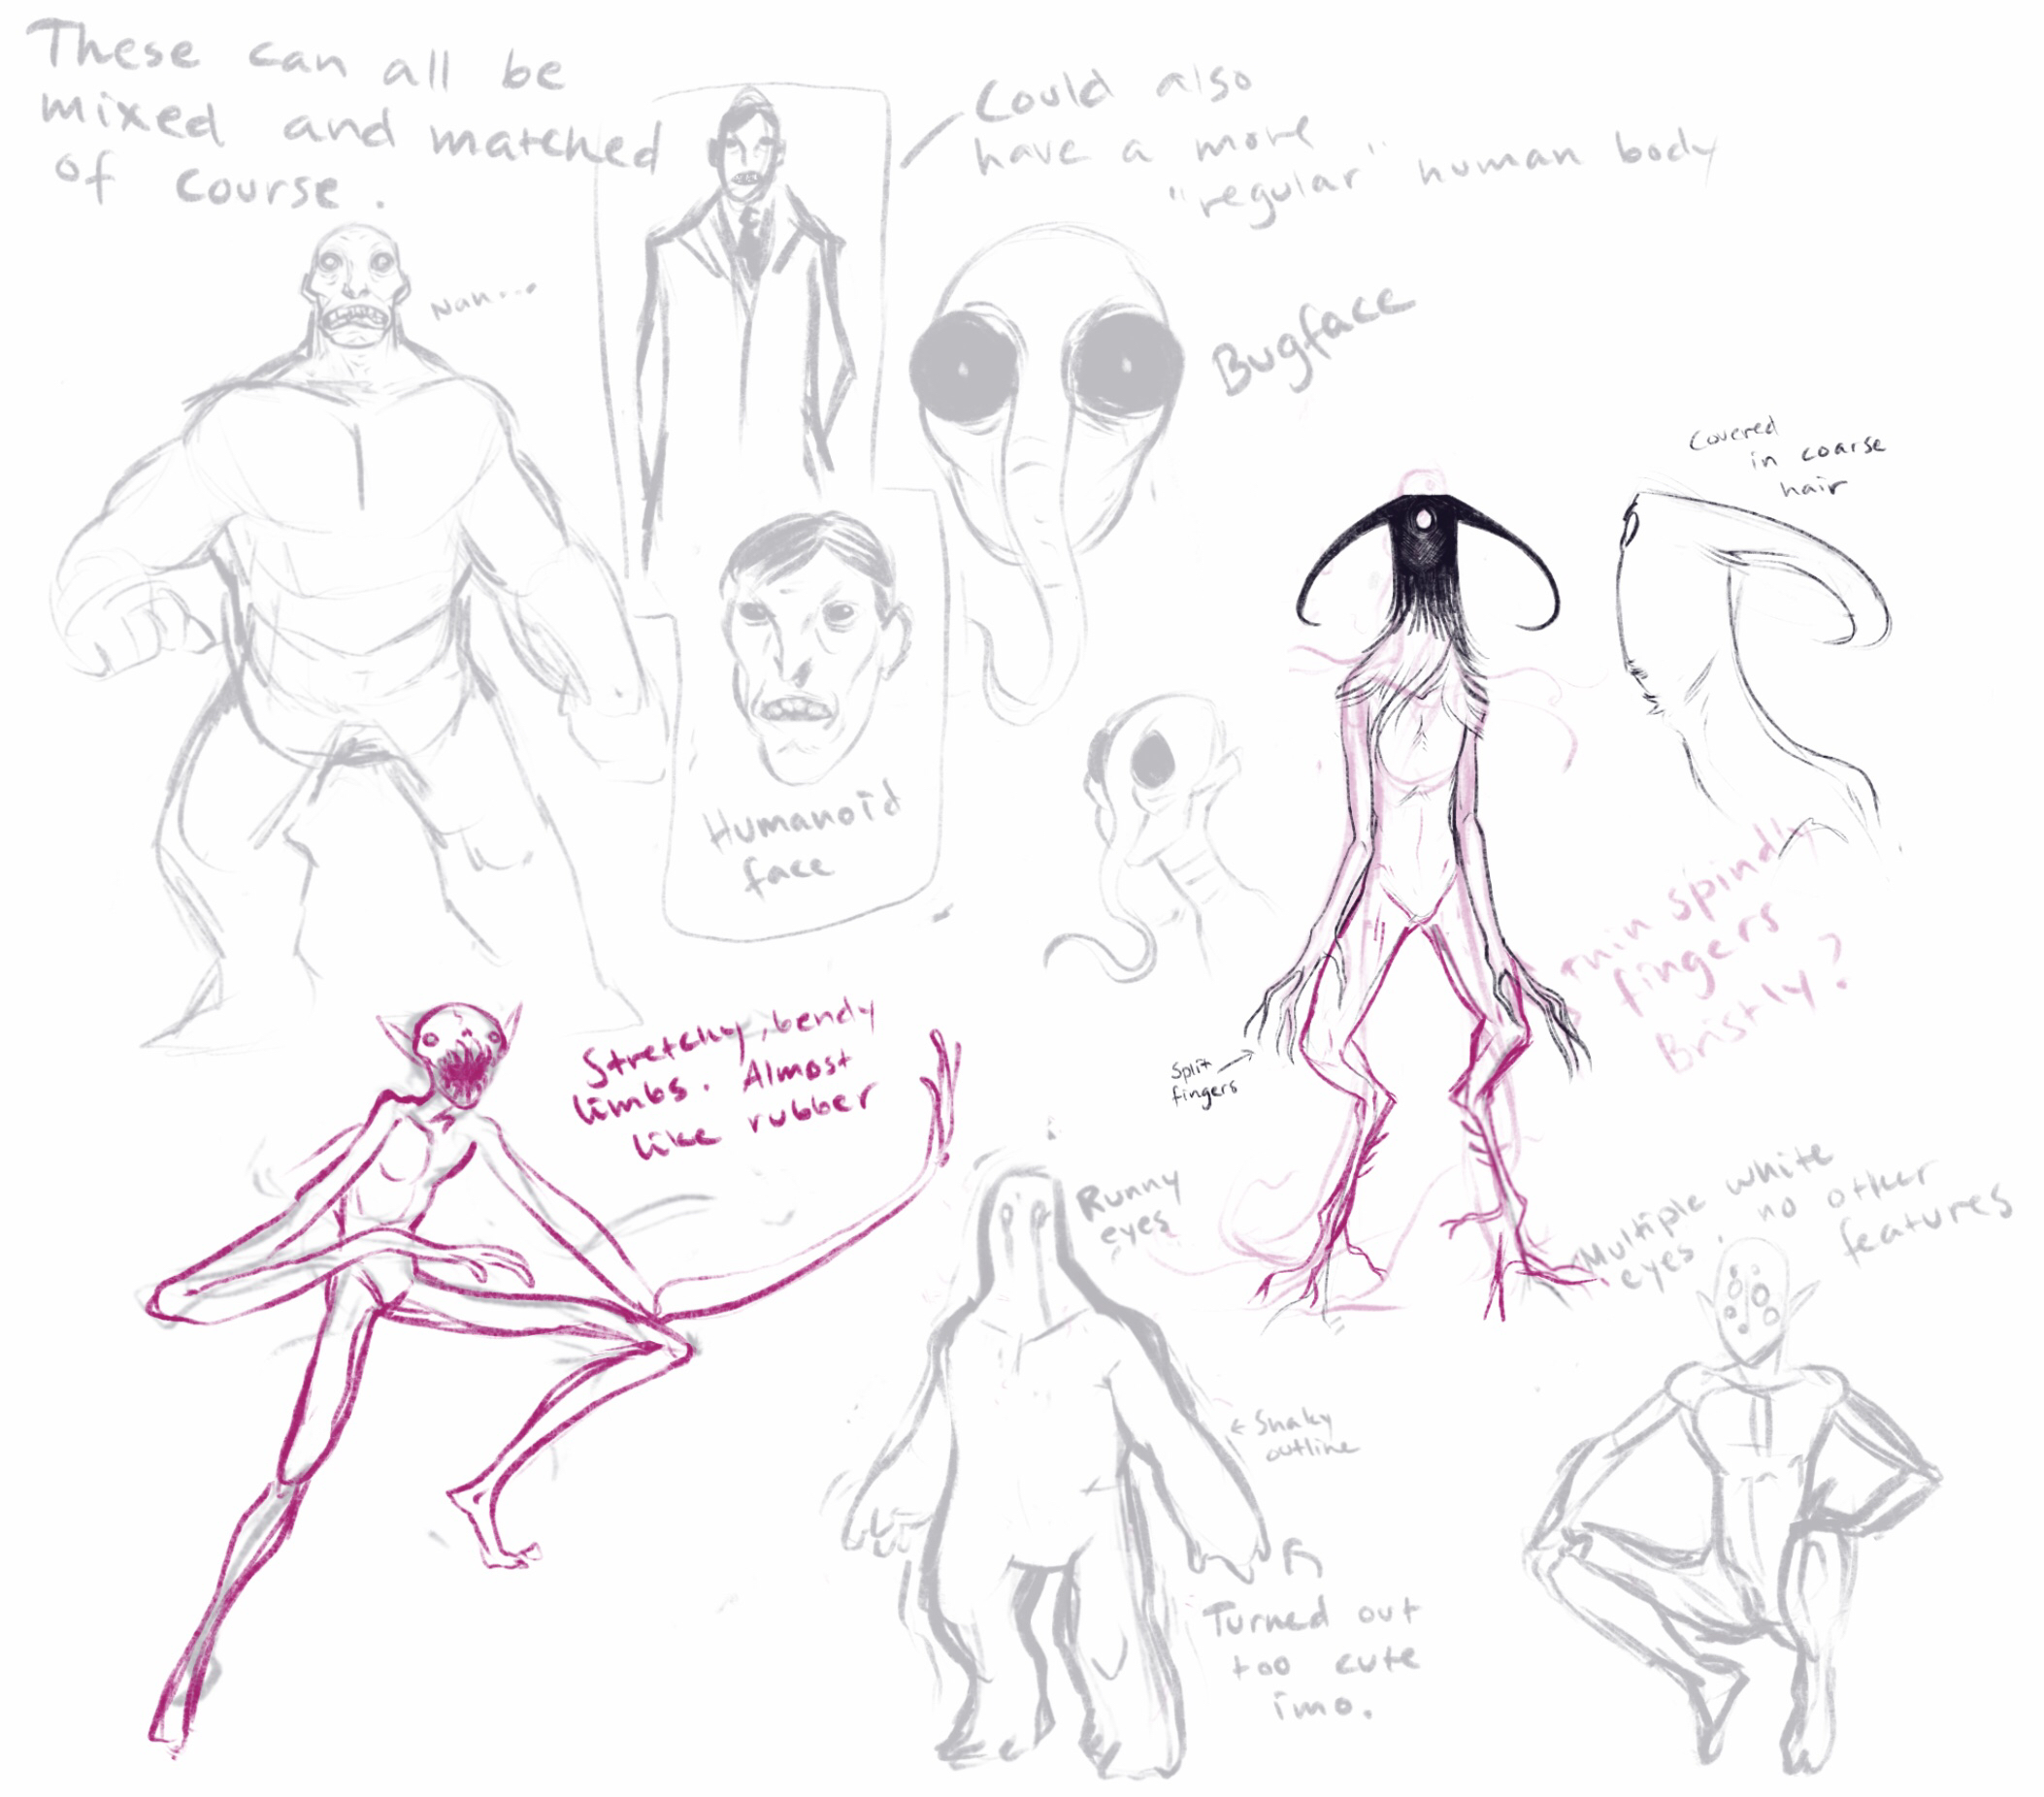 These can all be
mixed and matched
of course.
Could also
have a more
"regular" human body
Nah...
Bugface
Covered
in coarse
hair
Humanoid
face
thin spindly
fingers
Bristly?
Split
fingers
Stretchy, bendy
limbs. Almost
like rubber
Runny
eyes
Multiple white
eyes. no other
features
← Shaky
outline
Turned out
too cute
imo.